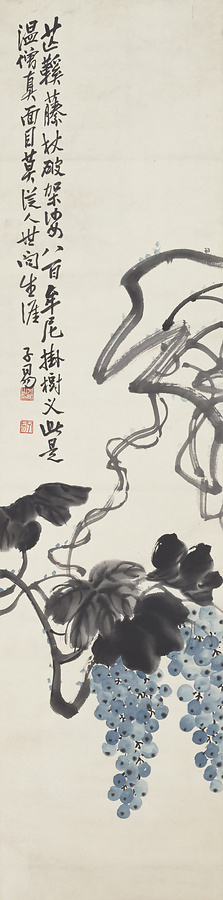 芒鞵藤杖破架娑八百牟尼掛樹义此是
温僧真面目莫從人世问生涯
子易